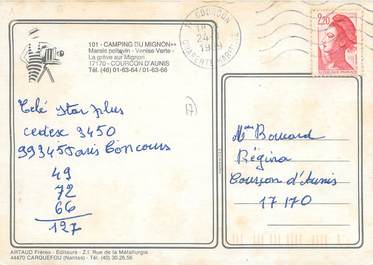 101 - CAMPING DU MIGNON**
Marais poitevin - Venise Verte -
La grève sur Mignon
17170 - COURÇON D'AUNIS
Tél. (46) 01-63-64 / 01-63-50
COURCON
24
CHARENTE-MARITIME
2,20
17
Télé Star Plus
cedex 3450
99345 Paris Concours
49
72
66
127
Mme
Régina
Courçon d'Aunis
17170
ARTAUD Frères - Editeurs - Z.I. Rue de la Métallurgie
44470 CARQUEFOU (Nantes) - Tél. (40) 30.28.56